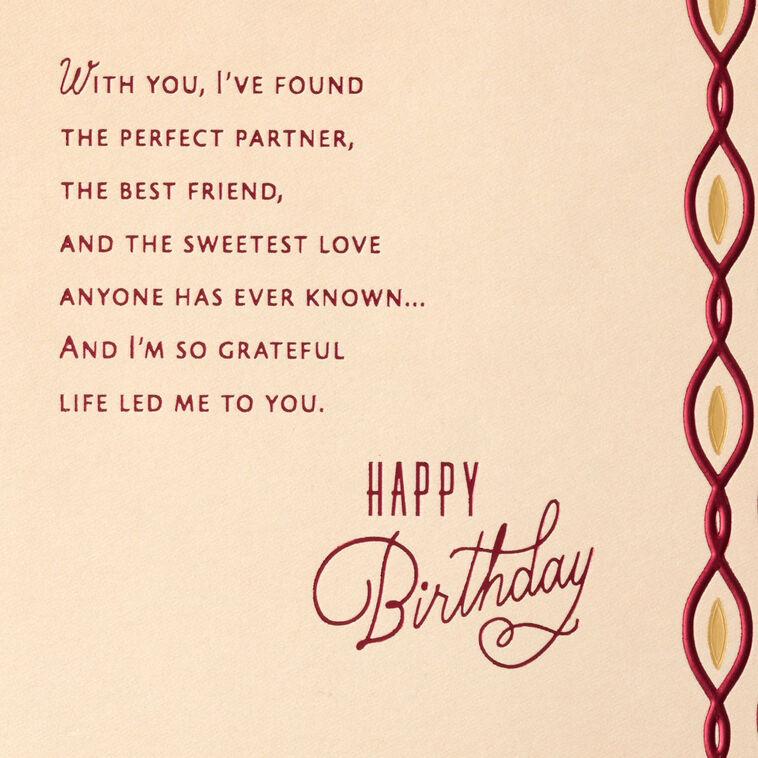 With you, I've found
the perfect partner,
the best friend,
and the sweetest love
anyone has ever known...
And I'm so grateful
life led me to you.
HAPPY
Birthday